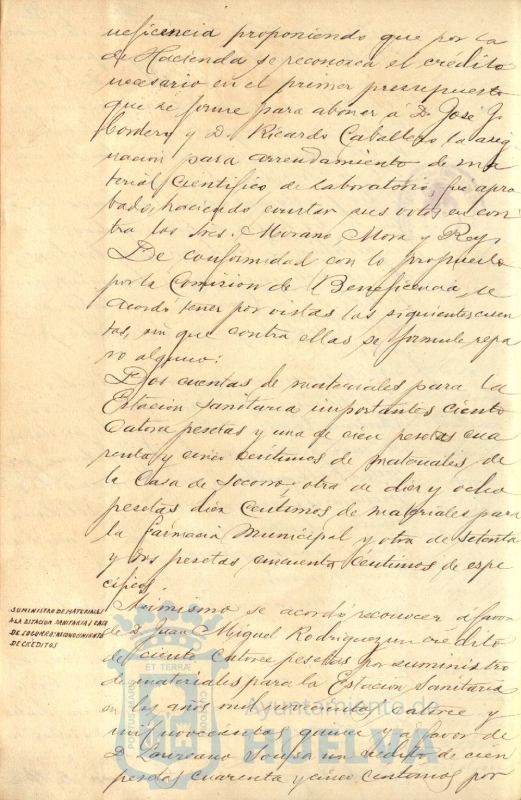 neficencia proponiendo que por la
de Hacienda se reconozca el crédito
necesario en el primer presupuesto
que se forme para abonar á D. José
Cordero y D. Ricardo Caballero la asig
nación para arrendamiento de ma
terial Científico de Laboratorio, fué apro
bado, haciendo constar sus votos en con
tra los Sres. Morano, Mora y Rey.
De conformidad con lo propuesto
por la Comisión de Beneficencia, se
acordó tener por vistas las siguientes cuen
tas, sin que contra ellas se formule repa
ro alguno:
Dos cuentas de materiales para la
Estación Sanitaria importantes ciento
catorce pesetas y una de cien pesetas cua
renta y cinco céntimos de materiales de
la Casa de Socorro, otra de diez y ocho
pesetas diez céntimos de materiales para
la Farmacia Municipal y otra de setenta
y dos pesetas cincuenta céntimos de espe
cíficos
SUMINISTRO DE MATERIALES
A LA ESTACION SANITARIA Y CASA
DE SOCORRO: RECONOCIMIENTO
DE CRÉDITOS
Asimismo se acordó reconocer á favor
de D. Juan Miguel Rodriguez un crédito
de ciento catorce pesetas por suministro
de materiales para la Estación Sanitaria
en los años mil novecientos catorce y
mil novecientos quince y á favor de
D. Laureano Sousa un crédito de cien
pesetas cuarenta y cinco céntimos por
PORTUS MARIS
ET TERRAE
CUSTODIA
Ayuntamiento de
HUELVA